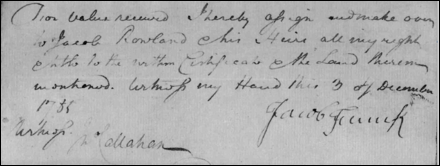 For value received I hereby assign and make over
to Jacob Rowland & his Heirs all my right
& title to the within Certificate & the Land therein
mentioned. Witness my Hand this 3 of December
Jacob
Callahan